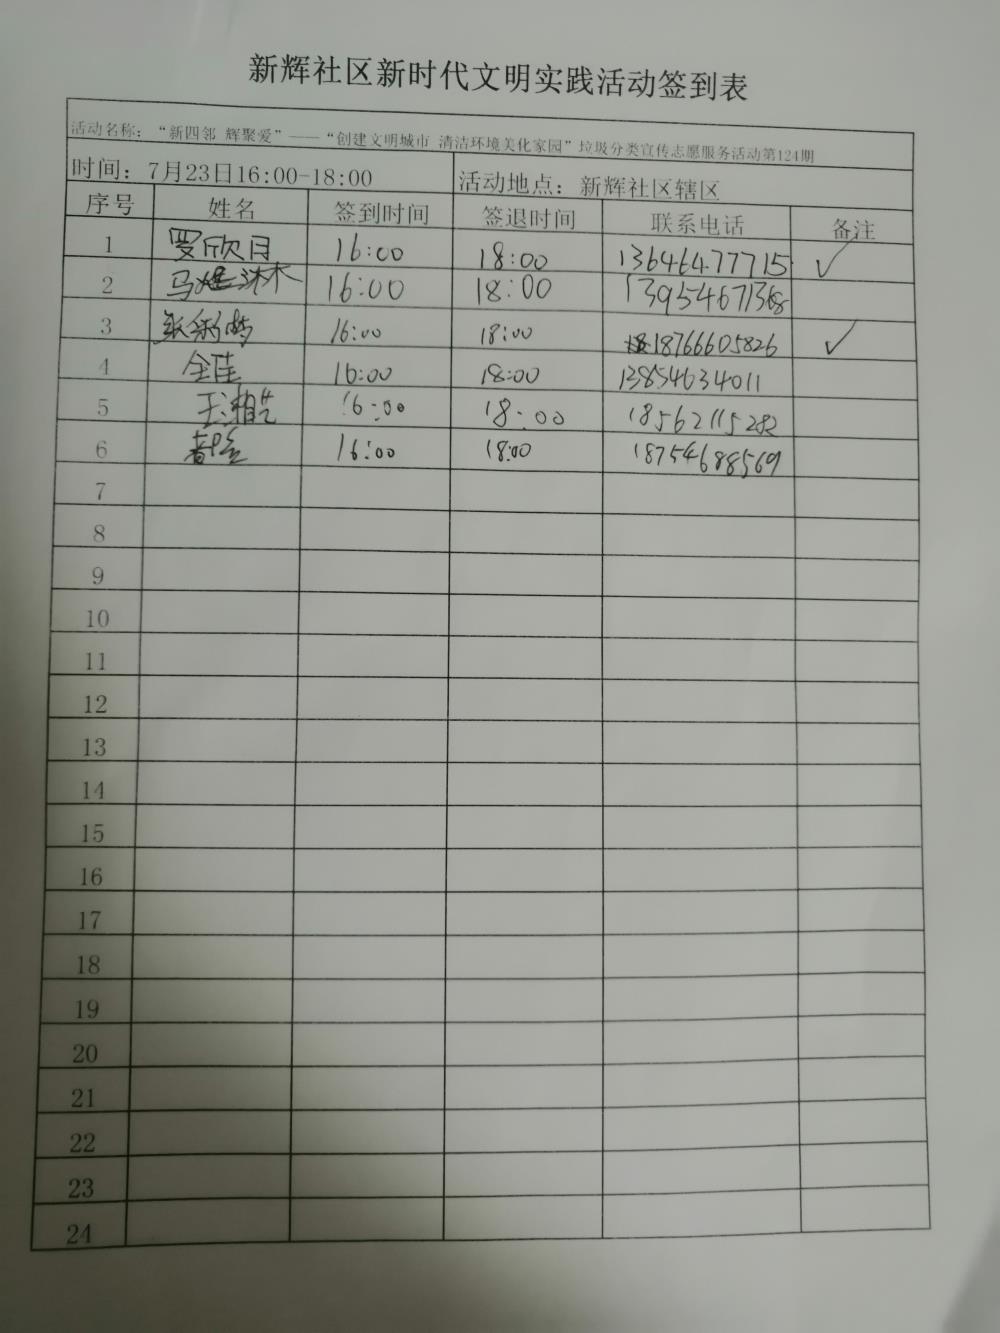 新辉社区新时代文明实践活动签到表
活动名称：“新四邻 辉聚爱”——“创建文明城市 清洁环境美化家园”垃圾分类宣传志愿服务活动第124期
时间：7月23日16:00-18:00 活动地点：新辉社区辖区
序号 姓名 签到时间 签退时间 联系电话 备注
1 罗欣月 16:00 18:00 13646477715 ✓
2 马 沐 16:00 18:00 13954671368
3 16:00 18:00 18766605826 ✓
4 全佳 16:00 18:00 13854634011
5 16:00 18:00 18562115282
6 16:00 18:00 18754688569
7
8
9
10
11
12
13
14
15
16
17
18
19
20
21
22
23
24